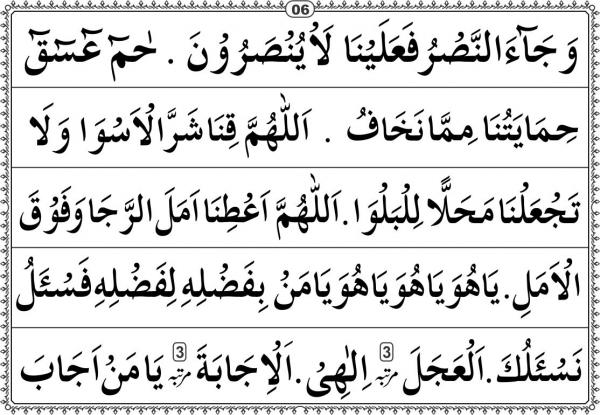 06
وَجَآءَ النَّصْرُ فَعَلَيْنَا لَا يُنْصَرُوْنَ . حٰمٓ عٓسٓقٓ
حِمَايَتُنَا مِمَّا نَخَافُ . اَللّٰهُمَّ قِنَا شَرَّ الْاَسْوَا وَلَا
تَجْعَلْنَا مَحَلًّا لِلْبَلْوَا. اَللّٰهُمَّ اَعْطِنَا اَمَلَ الرَّجَا وَفَوْقَ
الْاَمَلِ. يَاهُوَ يَاهُوَ يَاهُوَ يَامَنْ بِفَضْلِهِ لِفَضْلِهِ فَسْئَلُ
نَسْئَلُكَ. اَلْعَجَلَ 3 مرتبہ اِلٰهِىْ. اَلْاِجَابَةَ 3 مرتبہ يَا مَنْ اَجَابَ